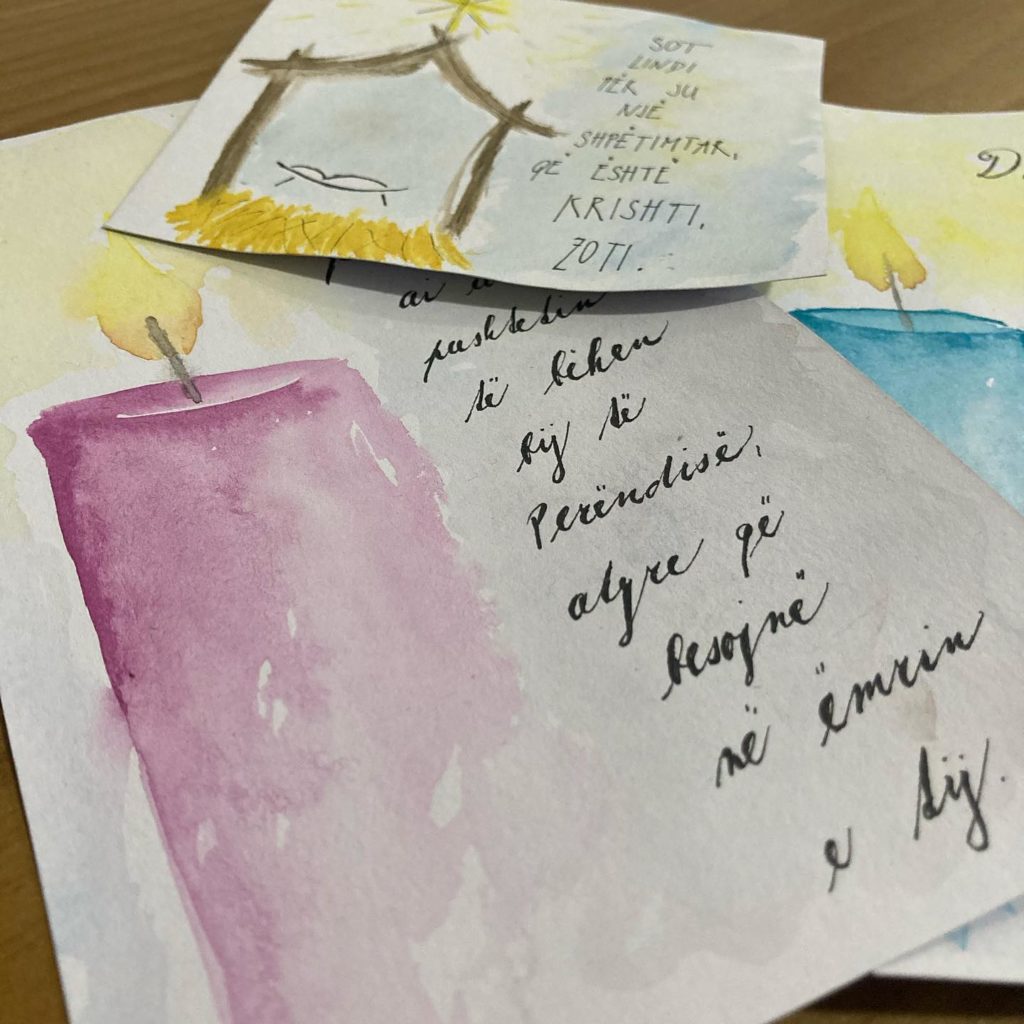 SOT
LINDI
PËR JU
NJË
SHPËTIMTAR,
QË ËSHTË
KRISHTI,
ZOTI.
ai
pushtetin
të bëhen
bij të
Perëndisë,
atyre që
besojnë
në ëmrin
e tij.